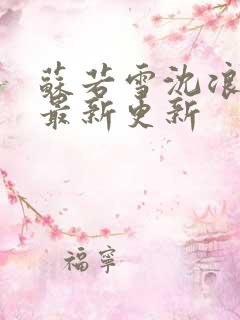 蘇若雪沈浪
最新更新
福寧